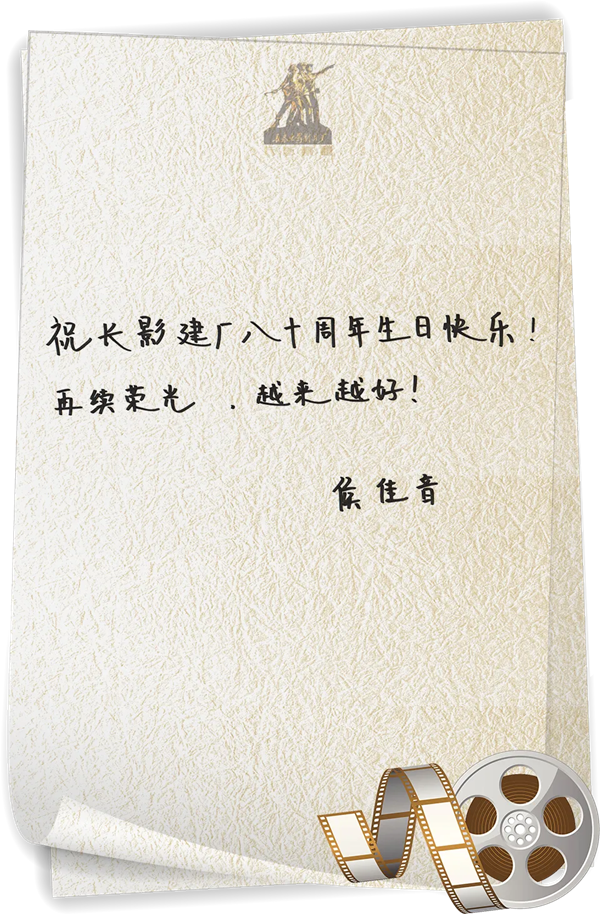 祝长影建厂八十周年生日快乐！
再续荣光．越来越好！
侯佳音